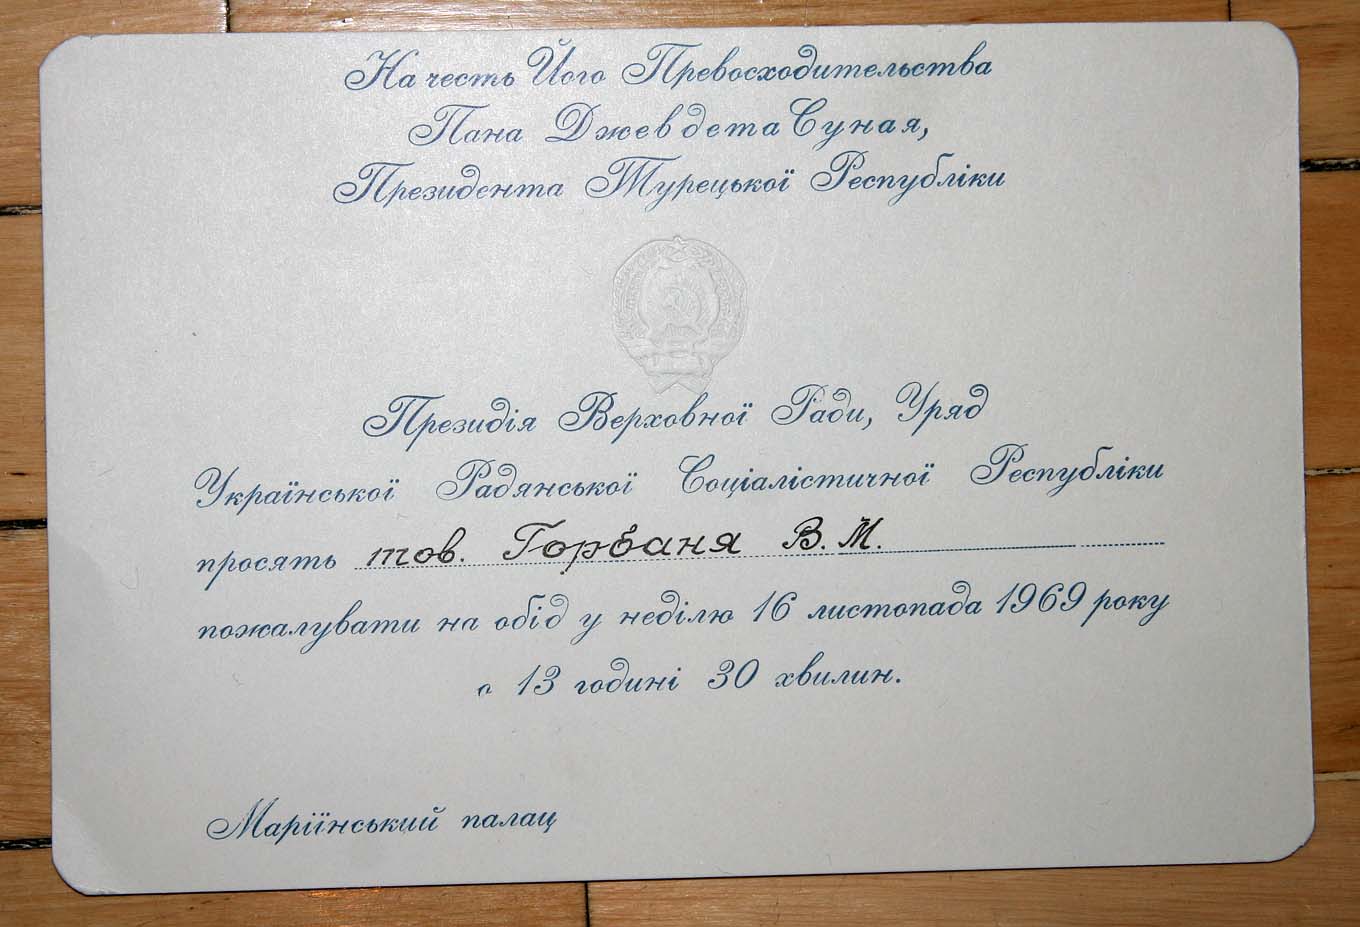 На честь Його Превосходительства
Пана Джевдета Суная,
Президента Турецької Республіки
Президія Верховної Ради, Уряд
Української Радянської Соціалістичної Республіки
просять тов. Горбаня В. М.
пожалувати на обід у неділю 16 листопада 1969 року
о 13 годині 30 хвилин.
Маріїнський палац